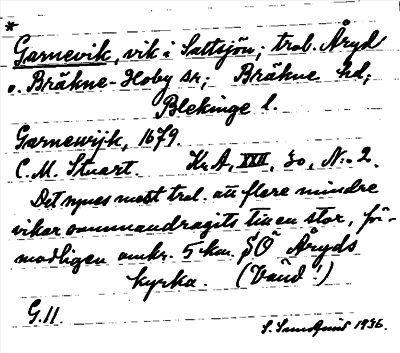 *
Garnevik, vik i Saltsjön; trol. Åryd
o. Bräkne-Hoby sn; Bräkne hd;
Blekinge l.
Garnewijk, 1679.
C.M. Stuart. Kr.A, XXII, 30, N:o 2.
Det synes mest trol. att flere mindre
vikar sammandragits till en stor, för-
modligen omkr. 5 km. SO Åryds
kyrka. (Vänd!)
G.II.
1936.